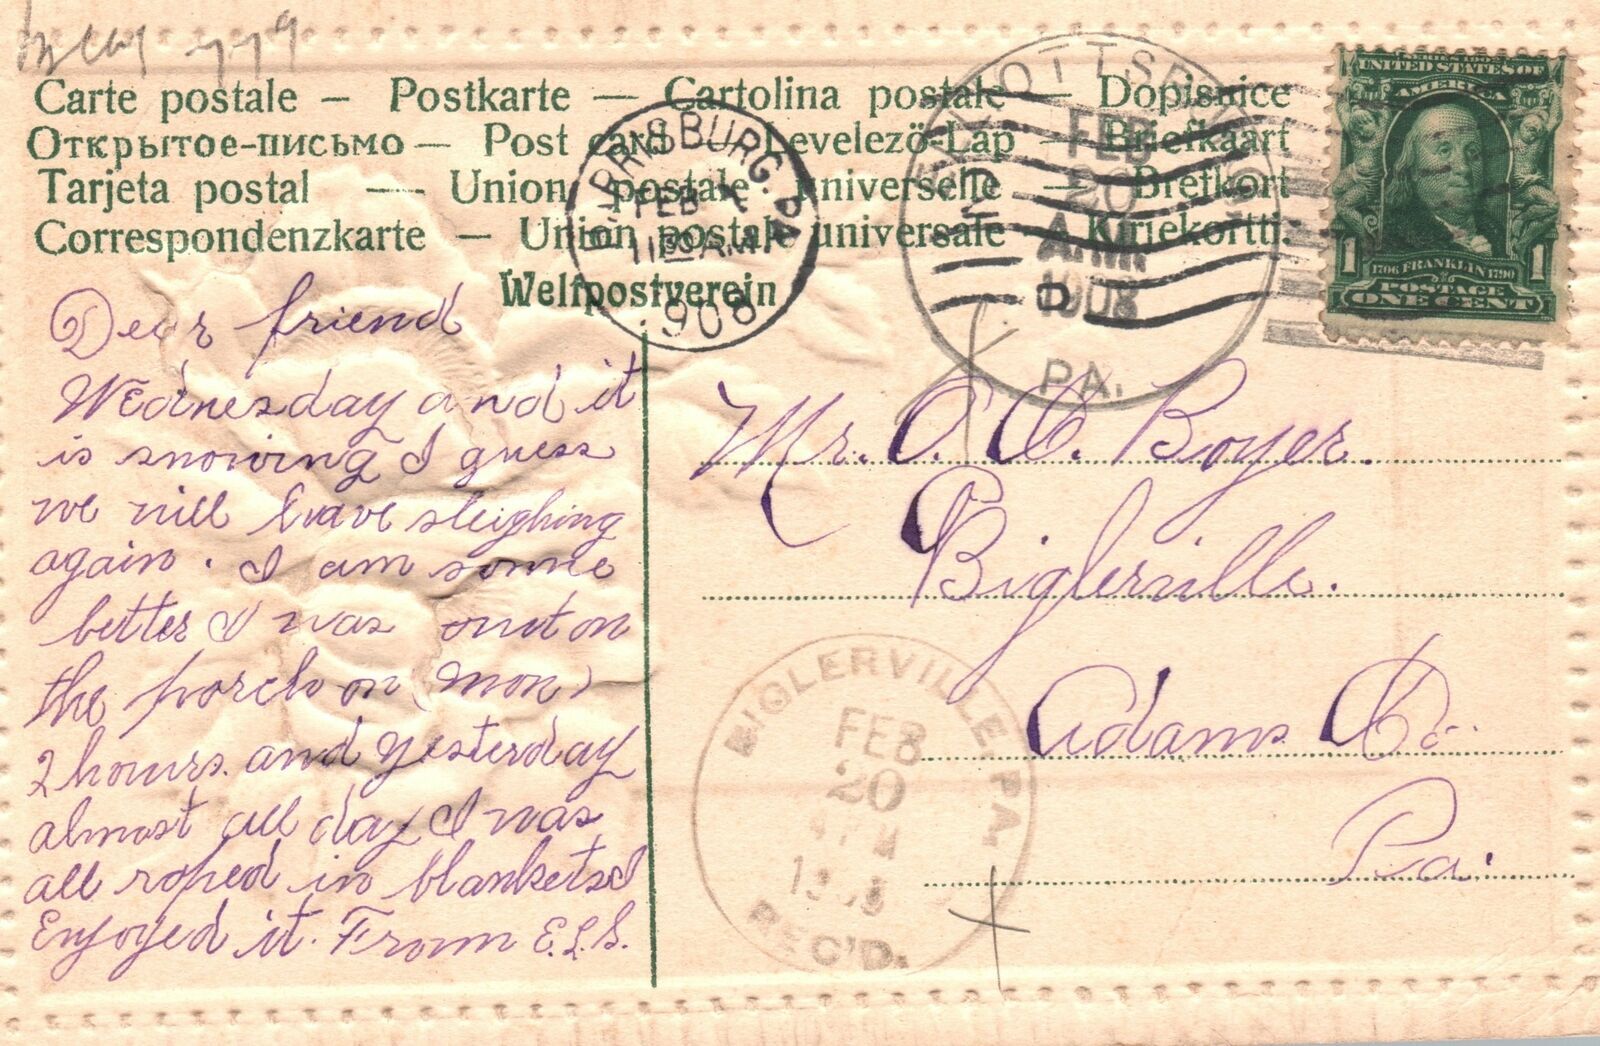 Carte postale — Postkarte — Cartolina postale — Dopisnice
Открытое-письмо — Post card — Levelező-Lap — Briefkaart
Tarjeta postal — Union postale universelle — Brefkort
Correspondenzkarte — Union postale universale — Kirjekortti.
Weltpostverein
HARRISBURG. PA.
FEB
11 30 A.M.
1908
FEB
20
A.M.
1908
PA.
SERIES 1902
UNITED STATES OF
AMERICA
1 1
1706 FRANKLIN 1790
POSTAGE
ONE CENT
Dear friend
Wednesday and it
is snowing I guess
we will have sleighing
again. I am some
better I was out on
the porch on (mon)
2 hours. and yesterday
almost all day I was
all roped in blankets I
Enjoyed it. From E.L.S.
Mr. C. C. Boyer.
Biglerville.
Adams Co.
Pa.
BIGLERVILLE PA.
FEB
20
1908
REC'D.